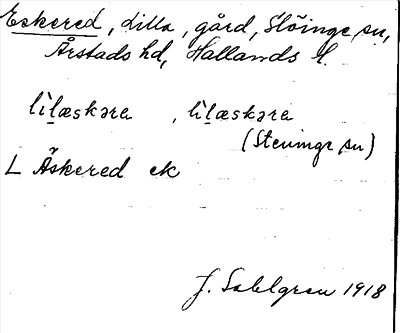 Eskered, Lilla, gård, Slöinge sn,
Årstads hd, Hallands l.
li`læskəra , li`læskəra
(Steninge sn)
L Äskered ek
J. Sahlgren 1918